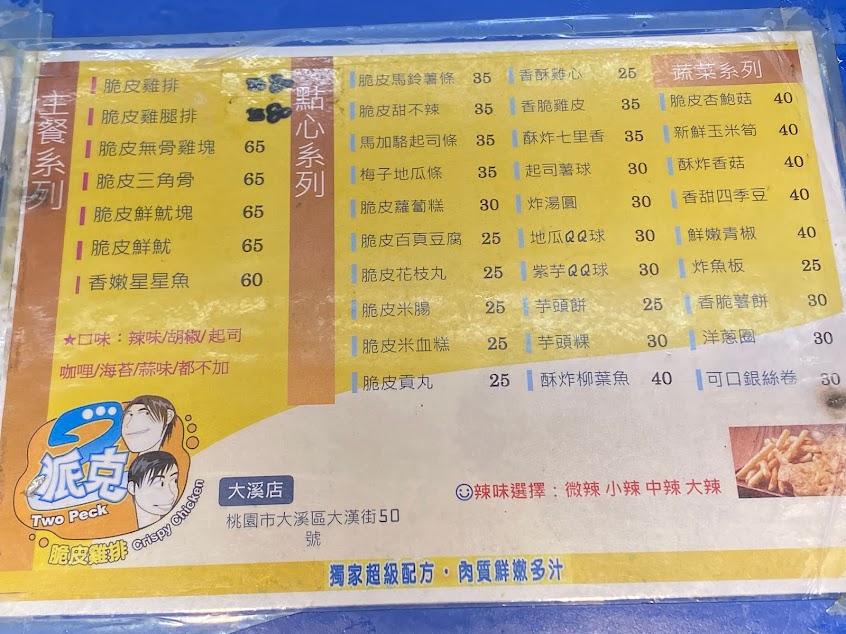 主餐系列
脆皮雞排
脆皮雞腿排
脆皮無骨雞塊 65
脆皮三角骨 65
脆皮鮮魷塊 65
脆皮鮮魷 65
香嫩星星魚 60
★口味：辣味/胡椒/起司
咖哩/海苔/蒜味/都不加
點心系列
脆皮馬鈴薯條 35
脆皮甜不辣 35
馬加駱起司條 35
梅子地瓜條 35
脆皮蘿蔔糕 30
脆皮百頁豆腐 25
脆皮花枝丸 25
脆皮米腸 25
脆皮米血糕 25
脆皮貢丸 25
香酥雞心 25
香脆雞皮 35
酥炸七里香 35
起司薯球 30
炸湯圓 30
地瓜QQ球 30
紫芋QQ球 30
芋頭餅 25
芋頭粿 30
酥炸柳葉魚 40
蔬菜系列
脆皮杏鮑菇 40
新鮮玉米筍 40
酥炸香菇 40
香甜四季豆 40
鮮嫩青椒 40
炸魚板 25
香脆薯餅 30
洋蔥圈 30
可口銀絲卷 30
派克
Two Peck
脆皮雞排 Crispy Chicken
大溪店
桃園市大溪區大漢街50
號
辣味選擇：微辣 小辣 中辣 大辣
獨家超級配方・肉質鮮嫩多汁